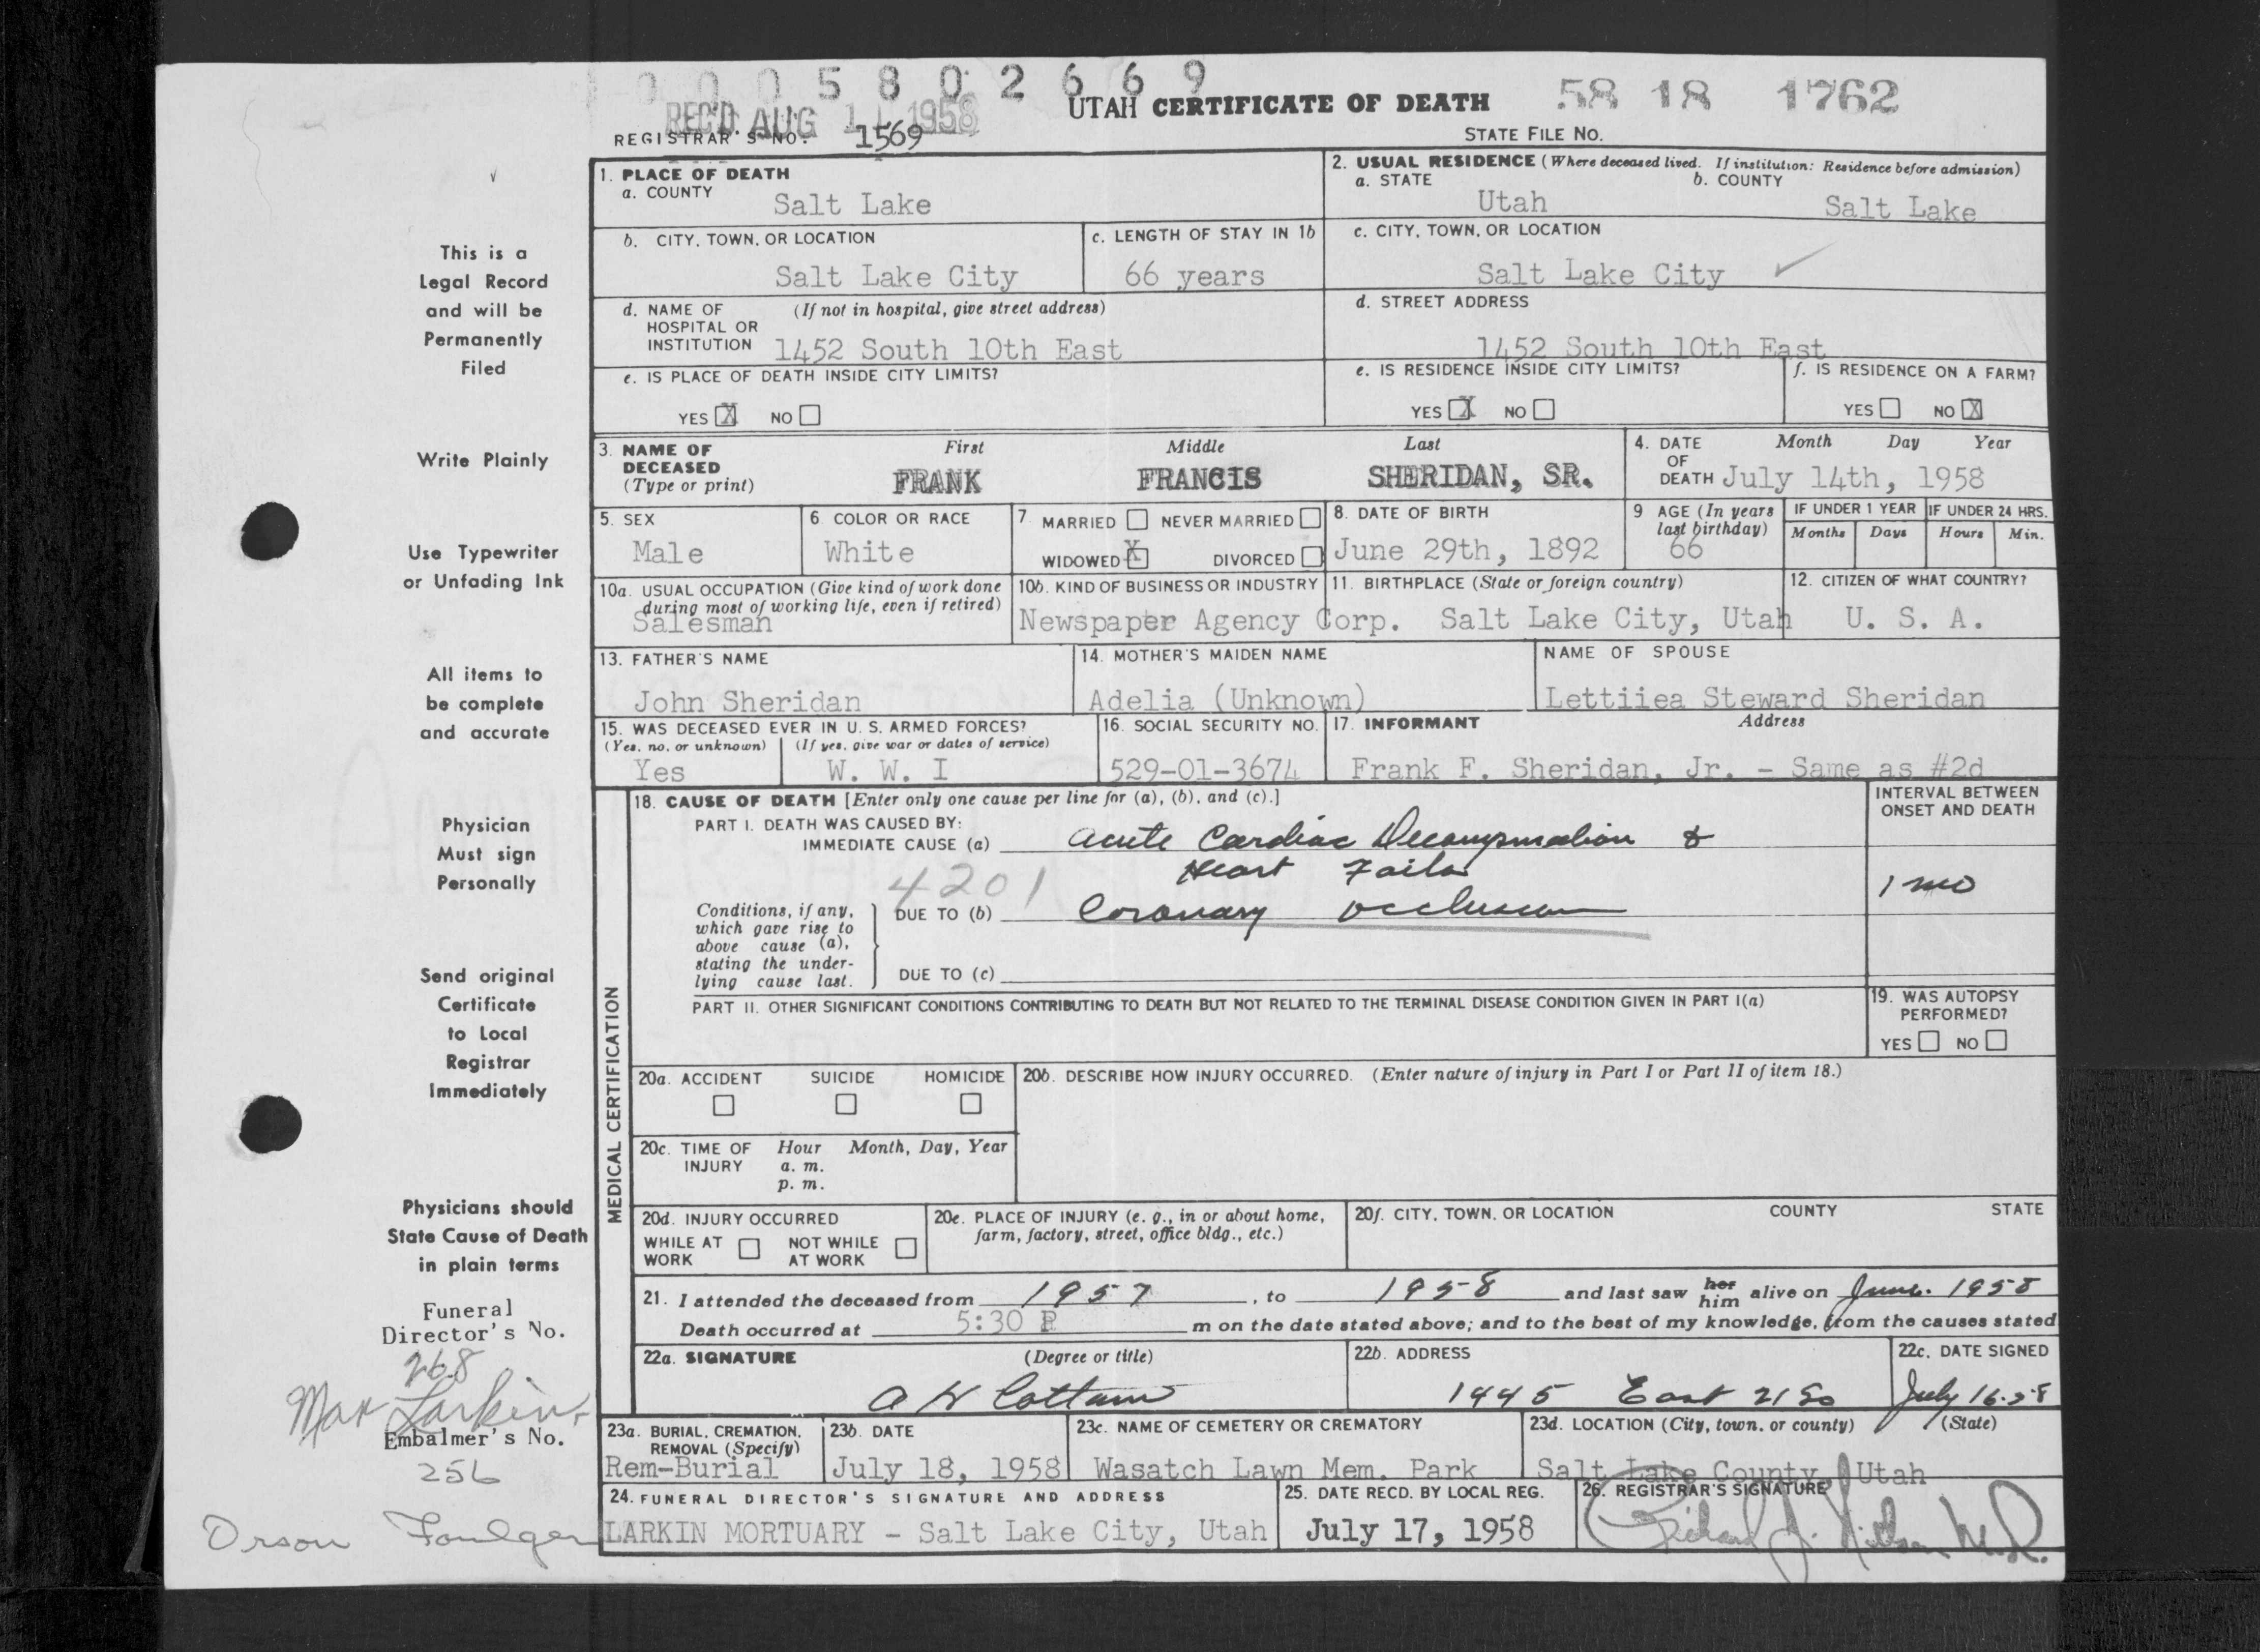 0 0 0 5 8 0 2 6 6 9
REC'D. AUG 11 1958
UTAH CERTIFICATE OF DEATH 58 18 1762
REGISTRAR'S NO. 1569 STATE FILE NO.
This is a
Legal Record
and will be
Permanently
Filed
Write Plainly
Use Typewriter
or Unfading Ink
All items to
be complete
and accurate
Physician
Must sign
Personally
Send original
Certificate
to Local
Registrar
Immediately
Physicians should
State Cause of Death
in plain terms
Funeral
Director's No.
268
Max Larkin
Embalmer's No.
256
Orson Foulger
1. PLACE OF DEATH
a. COUNTY
Salt Lake
2. USUAL RESIDENCE (Where deceased lived. If institution: Residence before admission)
a. STATE b. COUNTY
Utah Salt Lake
b. CITY, TOWN, OR LOCATION
Salt Lake City
c. LENGTH OF STAY IN 1b
66 years
c. CITY, TOWN, OR LOCATION
Salt Lake City
d. NAME OF (If not in hospital, give street address)
HOSPITAL OR
INSTITUTION 1452 South 10th East
d. STREET ADDRESS
1452 South 10th East
e. IS PLACE OF DEATH INSIDE CITY LIMITS?
YES X NO
e. IS RESIDENCE INSIDE CITY LIMITS?
YES X NO
f. IS RESIDENCE ON A FARM?
YES NO X
3. NAME OF First Middle Last
DECEASED
(Type or print) FRANK FRANCIS SHERIDAN, SR.
4. DATE Month Day Year
OF
DEATH July 14th, 1958
5. SEX
Male
6. COLOR OR RACE
White
7. MARRIED NEVER MARRIED
WIDOWED X DIVORCED
8. DATE OF BIRTH
June 29th, 1892
9 AGE (In years
last birthday)
66
IF UNDER 1 YEAR
Months Days
IF UNDER 24 HRS.
Hours Min.
10a. USUAL OCCUPATION (Give kind of work done
during most of working life, even if retired)
Salesman
10b. KIND OF BUSINESS OR INDUSTRY
Newspaper Agency Corp.
11. BIRTHPLACE (State or foreign country)
Salt Lake City, Utah
12. CITIZEN OF WHAT COUNTRY?
U. S. A.
13. FATHER'S NAME
John Sheridan
14. MOTHER'S MAIDEN NAME
Adelia (Unknown)
NAME OF SPOUSE
Lettiiea Steward Sheridan
15. WAS DECEASED EVER IN U. S. ARMED FORCES?
(Yes, no, or unknown) (If yes, give war or dates of service)
Yes W. W. I
16. SOCIAL SECURITY NO.
529-01-3674
17. INFORMANT Address
Frank F. Sheridan, Jr. - Same as #2d
MEDICAL CERTIFICATION
18. CAUSE OF DEATH [Enter only one cause per line for (a), (b), and (c).]
INTERVAL BETWEEN
ONSET AND DEATH
PART I. DEATH WAS CAUSED BY:
IMMEDIATE CAUSE (a) Acute Cardiac Decompensation &
Heart Failur
1 mo
4201
Conditions, if any,
which gave rise to
above cause (a),
stating the under-
lying cause last.
DUE TO (b) Coronary Occlusion
DUE TO (c)
PART II. OTHER SIGNIFICANT CONDITIONS CONTRIBUTING TO DEATH BUT NOT RELATED TO THE TERMINAL DISEASE CONDITION GIVEN IN PART I(a)
19. WAS AUTOPSY
PERFORMED?
YES NO
20a. ACCIDENT SUICIDE HOMICIDE
20b. DESCRIBE HOW INJURY OCCURRED. (Enter nature of injury in Part I or Part II of item 18.)
20c. TIME OF Hour Month, Day, Year
INJURY a. m.
p. m.
20d. INJURY OCCURRED
WHILE AT NOT WHILE
WORK AT WORK
20e. PLACE OF INJURY (e. g., in or about home,
farm, factory, street, office bldg., etc.)
20f. CITY, TOWN, OR LOCATION COUNTY STATE
21. I attended the deceased from 1957, to 1958 and last saw her him alive on June. 1958
Death occurred at 5:30 P m on the date stated above; and to the best of my knowledge, from the causes stated
22a. SIGNATURE (Degree or title)
A W Cottam
22b. ADDRESS
1445 East 21 So
22c. DATE SIGNED
July 16-58
23a. BURIAL, CREMATION,
REMOVAL (Specify)
Rem-Burial
23b. DATE
July 18, 1958
23c. NAME OF CEMETERY OR CREMATORY
Wasatch Lawn Mem. Park
23d. LOCATION (City, town, or county) (State)
Salt Lake County, Utah
24. FUNERAL DIRECTOR'S SIGNATURE AND ADDRESS
LARKIN MORTUARY - Salt Lake City, Utah
25. DATE RECD. BY LOCAL REG.
July 17, 1958
26. REGISTRAR'S SIGNATURE
Richard J. M.D.